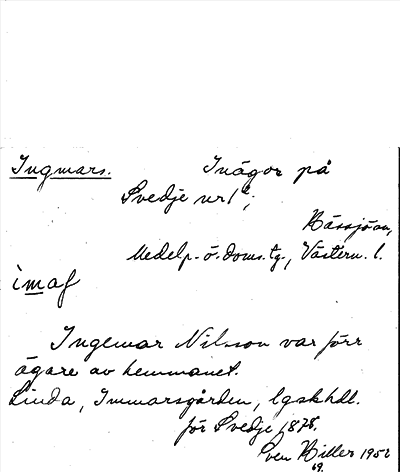 Ingmars. Inägor på
Svedje nr 1;
Hässjö sn,
Medelp. ö. doms. tg., Västern. l.
imaf
Ingemar Nilsson var förr
ägare av hemmanet.
Linda, Immarsgården, lgskhdl.
för Svedje 1878.
Sven Hiller 1952